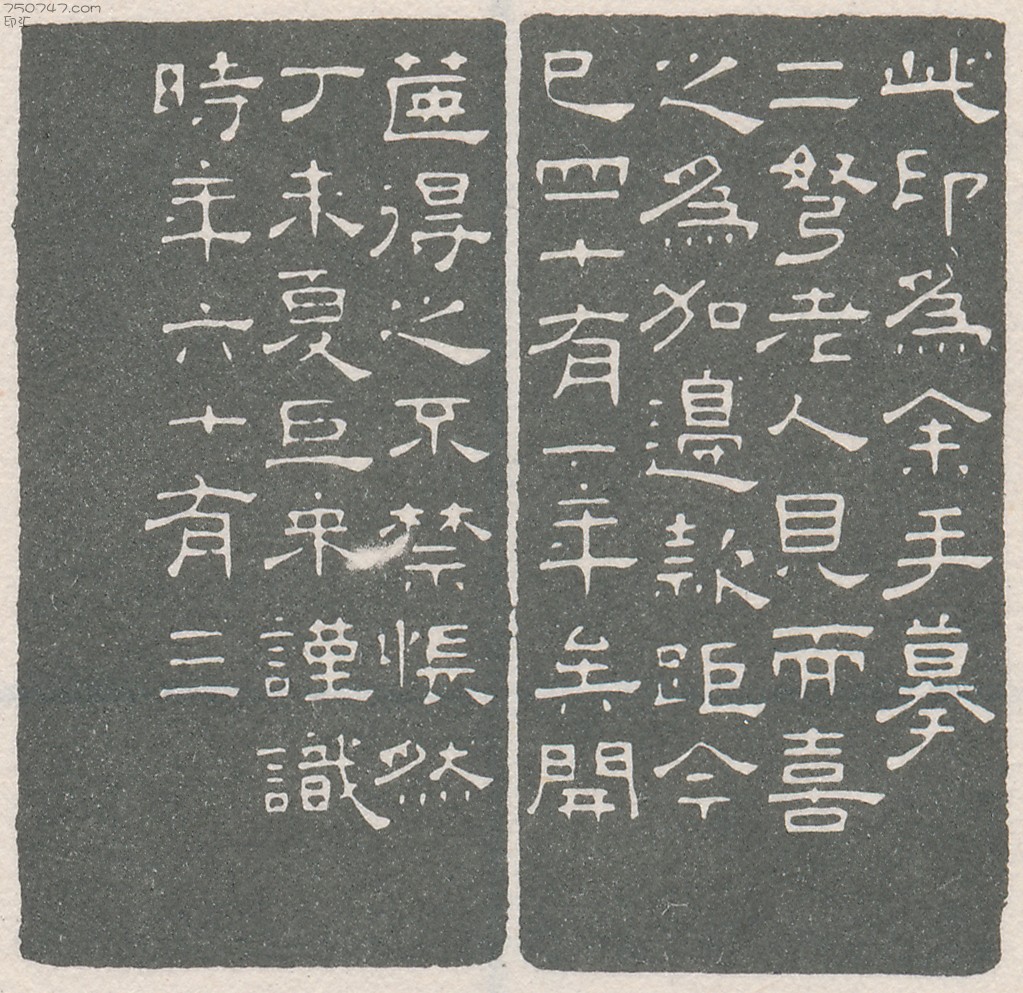 750747.com
印汇
此印為余手摹
二弩老人見而喜
之為加邊款距今
已四十有一年矣開
篋得之不禁悵然
丁未夏巨來謹識
時年六十有三